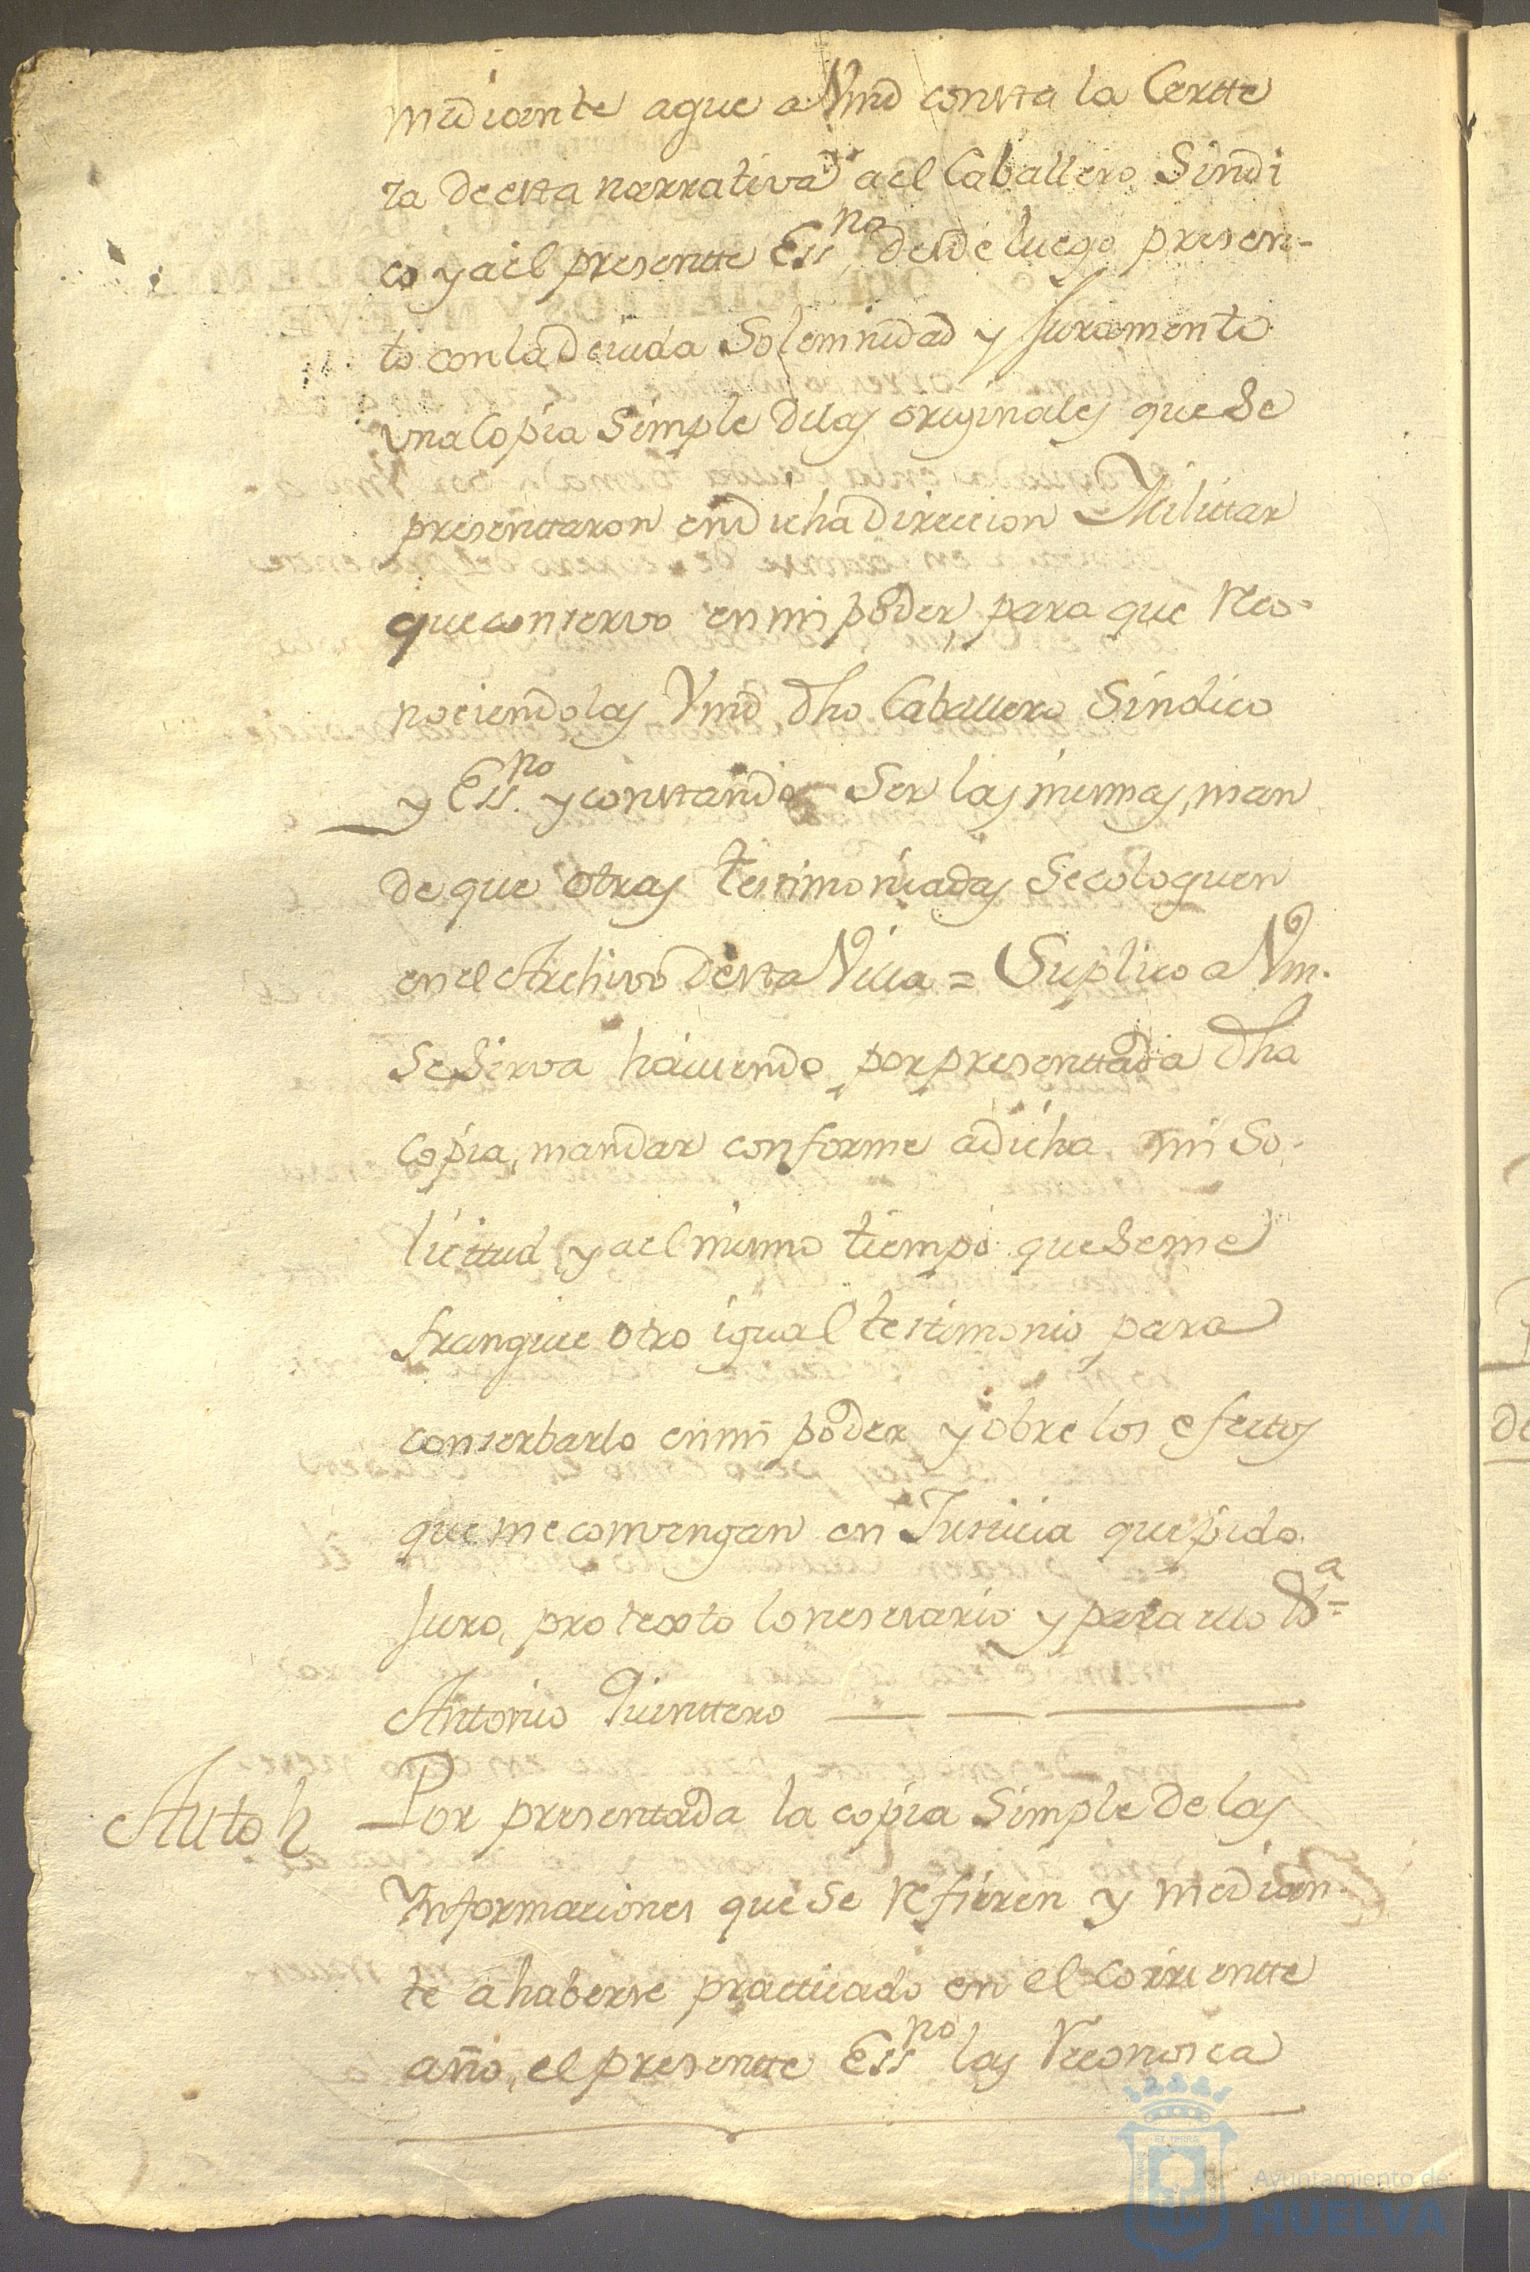 mediante aque a Vmd consta la Certte
za de esta narrativa a el Caballero Sindi
co y a el presentte Essno desde luego presen-
to con la deuida Solemnidad y Juramento
una Copia Simple delas originales que se
presenttaron en dicha Direccion Milittar
que conservo en mi poder, para que Reco-
nociendolas Vmd dho Caballero Sindico
y Essno y constando Ser las mismas, man
de que otras testimoniadas Se coloquen
en el Archivo desta Villa = Suplico a Vm.
se Sirva haviendo por presenttada dha
copia, mandar conforme a dicha mi So-
licittud, y a el mismo tiempo que se me
franquee otro igual testimonio para
conserbarlo en mi poder y obre los efectos
que me convengan en Justicia que pido
Juro, protexto lo nesesario y para ello Da=
Antonio Quinttero
Auto Por presentada la copia Simple de las
Ynformaciones que se refieren y median-
te a haberse practicado en el corrientte
año, el presentte Essno las Reconosca
Ayuntamiento de
HUELVA